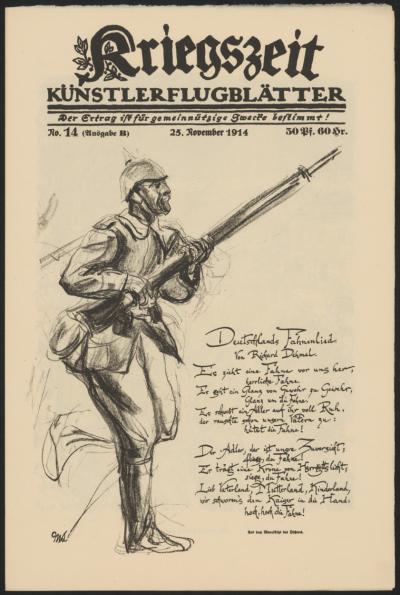 Kriegszeit
KÜNSTLERFLUGBLÄTTER
Der Ertrag ist für gemeinnützige Zwecke bestimmt!
No. 14 (Ausgabe B) 25. November 1914 50 Pf. 60 Hr.
Deutschlands Fahnenlied
Von Richard Dehmel.
Es zieht eine Fahne vor uns her,
herrliche Fahne.
Es geht ein Glanz von Gewehr zu Gewehr,
Glanz um die Fahne.
Es schwebt ein Adler auf ihr voll Ruh,
der rauschte schon unsern Vätern zu:
hütet die Fahne!
Der Adler, der ist unsre Zuversicht;
fliege, du Fahne!
Er trägt eine Krone von Herrgotts Licht,
siege, du Fahne!
Lieb Vaterland, Mutterland, Kinderland,
wir schwören's dem Kaiser in die Hand:
hoch, hoch die Fahne!
Aus dem Manuskript des Dichters.
ML